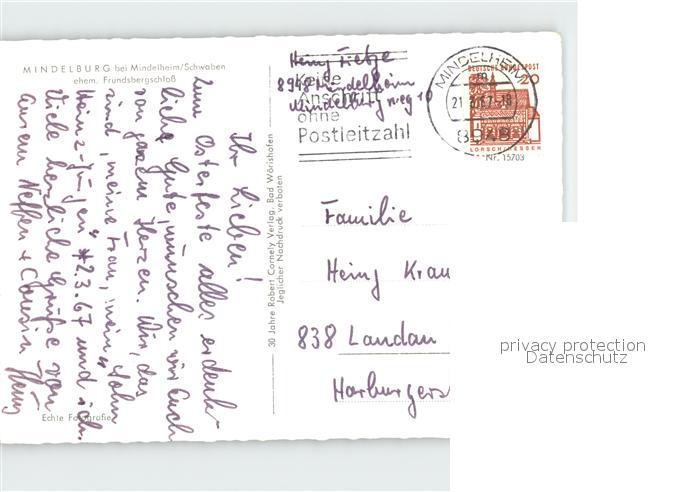 MINDELBURG bei Mindelheim/Schwaben
ehem. Frundsbergschloß
Ihr Lieben!
Zum Osterfeste alles erdenk-
liche Gute, wünschen wir Euch
von ganzem Herzen. Wir, das
sind, meine Frau, mein "Sohn
Heinz-Jürgen" *2.3.67 und ich.
Viele herzliche Grüße von
Eurem Neffen + Cousin Heinz
Echte Fotografie
30 Jahre Robert Cornely Verlag, Bad Wörishofen
Jeglicher Nachdruck verboten
Heinz Tietze
8948 Mindelheim
Mindelburgweg 10
Keine
Anschrift
ohne
Postleitzahl
MINDELHEIM
8948
DEUTSCHE BUNDESPOST
20
LORSCH/HESSEN
Nr. 15703
Familie
Heinz Krau
838 Landau
Harburgers
privacy protection
Datenschutz